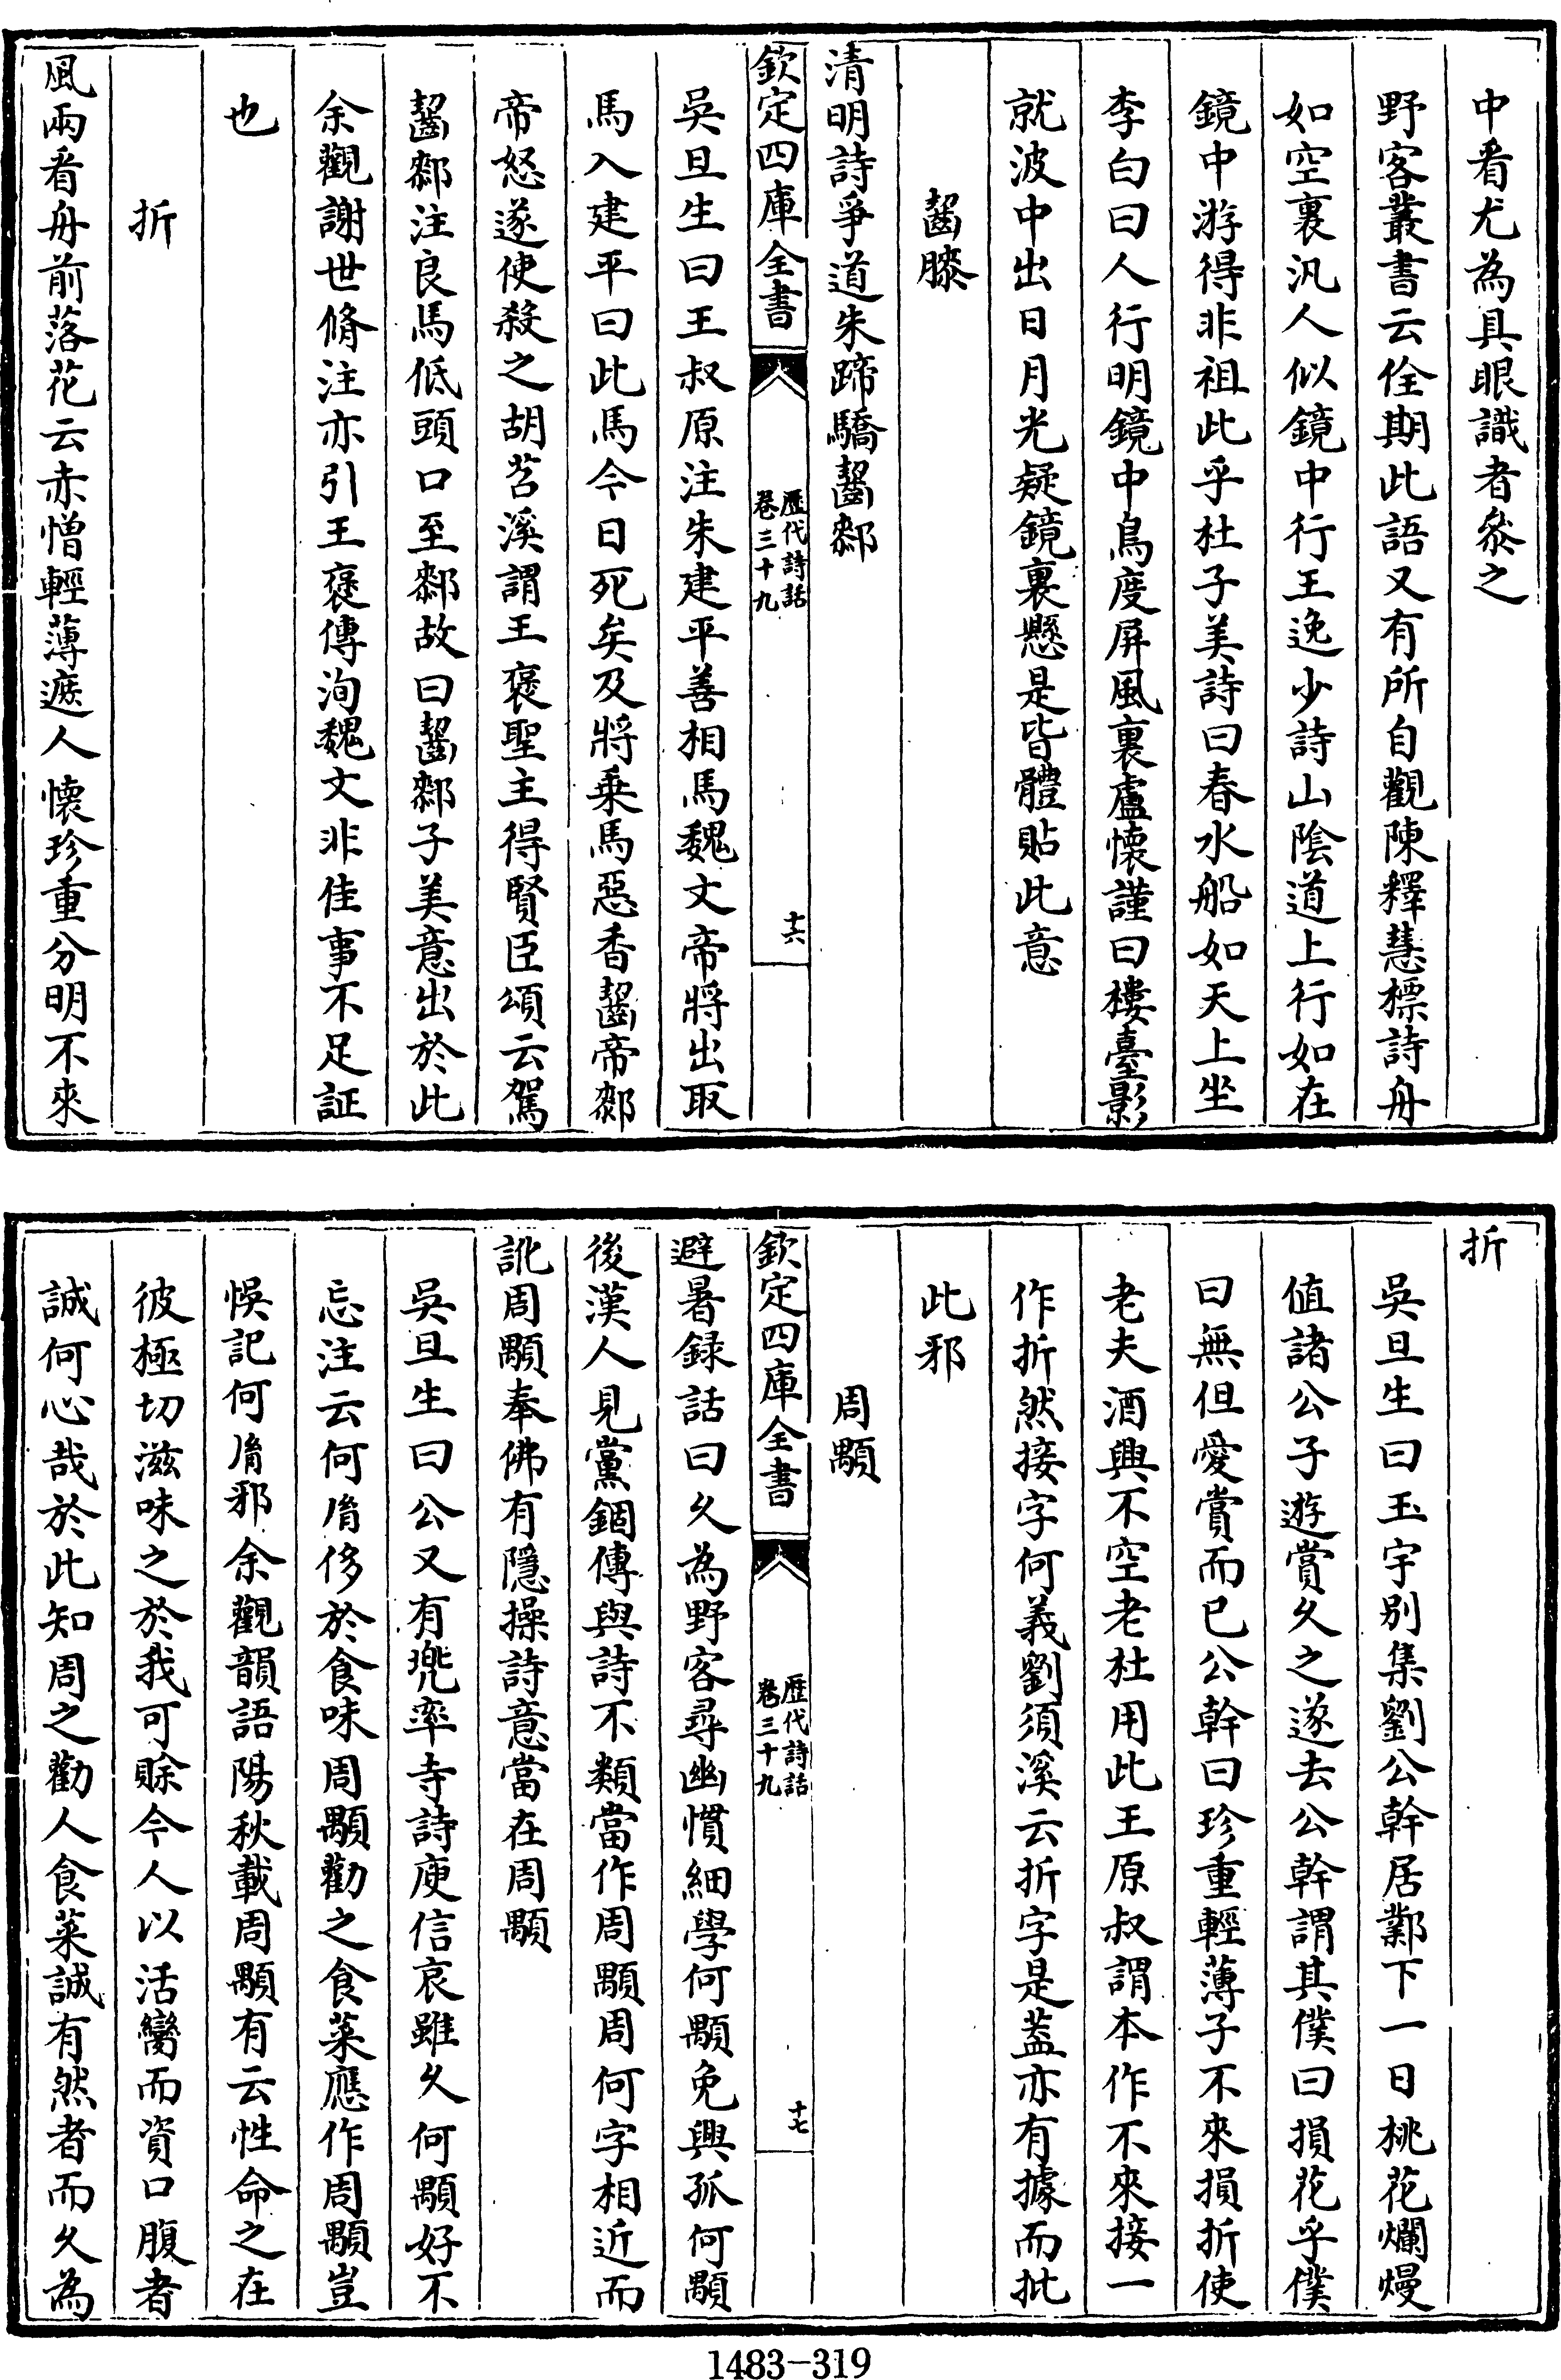 中看尤為具眼識者叅之
野客叢書云佺期此語又有所自觀陳釋慧標詩舟
如空裏汎人似鏡中行王逸少詩山陰道上行如在
鏡中游得非祖此乎杜子美詩曰春水船如天上坐
李白曰人行明鏡中鳥度屏風裏盧懷謹曰樓臺影
就波中出日月光疑鏡裏懸是皆體貼此意
齧膝
清明詩爭道朱蹄驕齧厀
欽定四庫全書
歴代詩話
卷三十九
十六
吳旦生曰王叔原注朱建平善相馬魏文帝將出取
馬入建平曰此馬今日死矣及將乗馬惡香齧帝厀
帝怒遂使殺之胡苕溪謂王褒聖主得賢臣頌云駕
齧厀注良馬低頭口至厀故曰齧厀子美意出於此
余觀謝世脩注亦引王褒傳洵魏文非佳事不足証
也
折
風雨看舟前落花云赤憎輕薄遮人懷珍重分明不來
折
吳旦生曰玉宇别集劉公幹居鄴下一日桃花爛熳
值諸公子遊賞久之遂去公幹謂其僕曰損花乎僕
曰無但愛賞而已公幹曰珍重輕薄子不來損折使
老夫酒興不空老杜用此王原叔謂本作不來接一
作折然接字何義劉須溪云折字是葢亦有據而批
此邪
周顒
欽定四庫全書
歴代詩話
卷三十九
十七
避暑録話曰久為野客尋幽慣細學何顒免興孤何顒
後漢人見黨錮傳與詩不類當作周顒周何字相近而
訛周顒奉佛有隱操詩意當在周顒
吳旦生曰公又有兜率寺詩庾信哀雖久何顒好不
忘注云何胤侈於食味周顒勸之食菜應作周顒豈
悞記何胤邪余觀韻語陽秋載周顒有云性命之在
彼極切滋味之於我可賒今人以活臠而資口腹者
誠何心哉於此知周之勸人食菜誠有然者而久為
1483-319